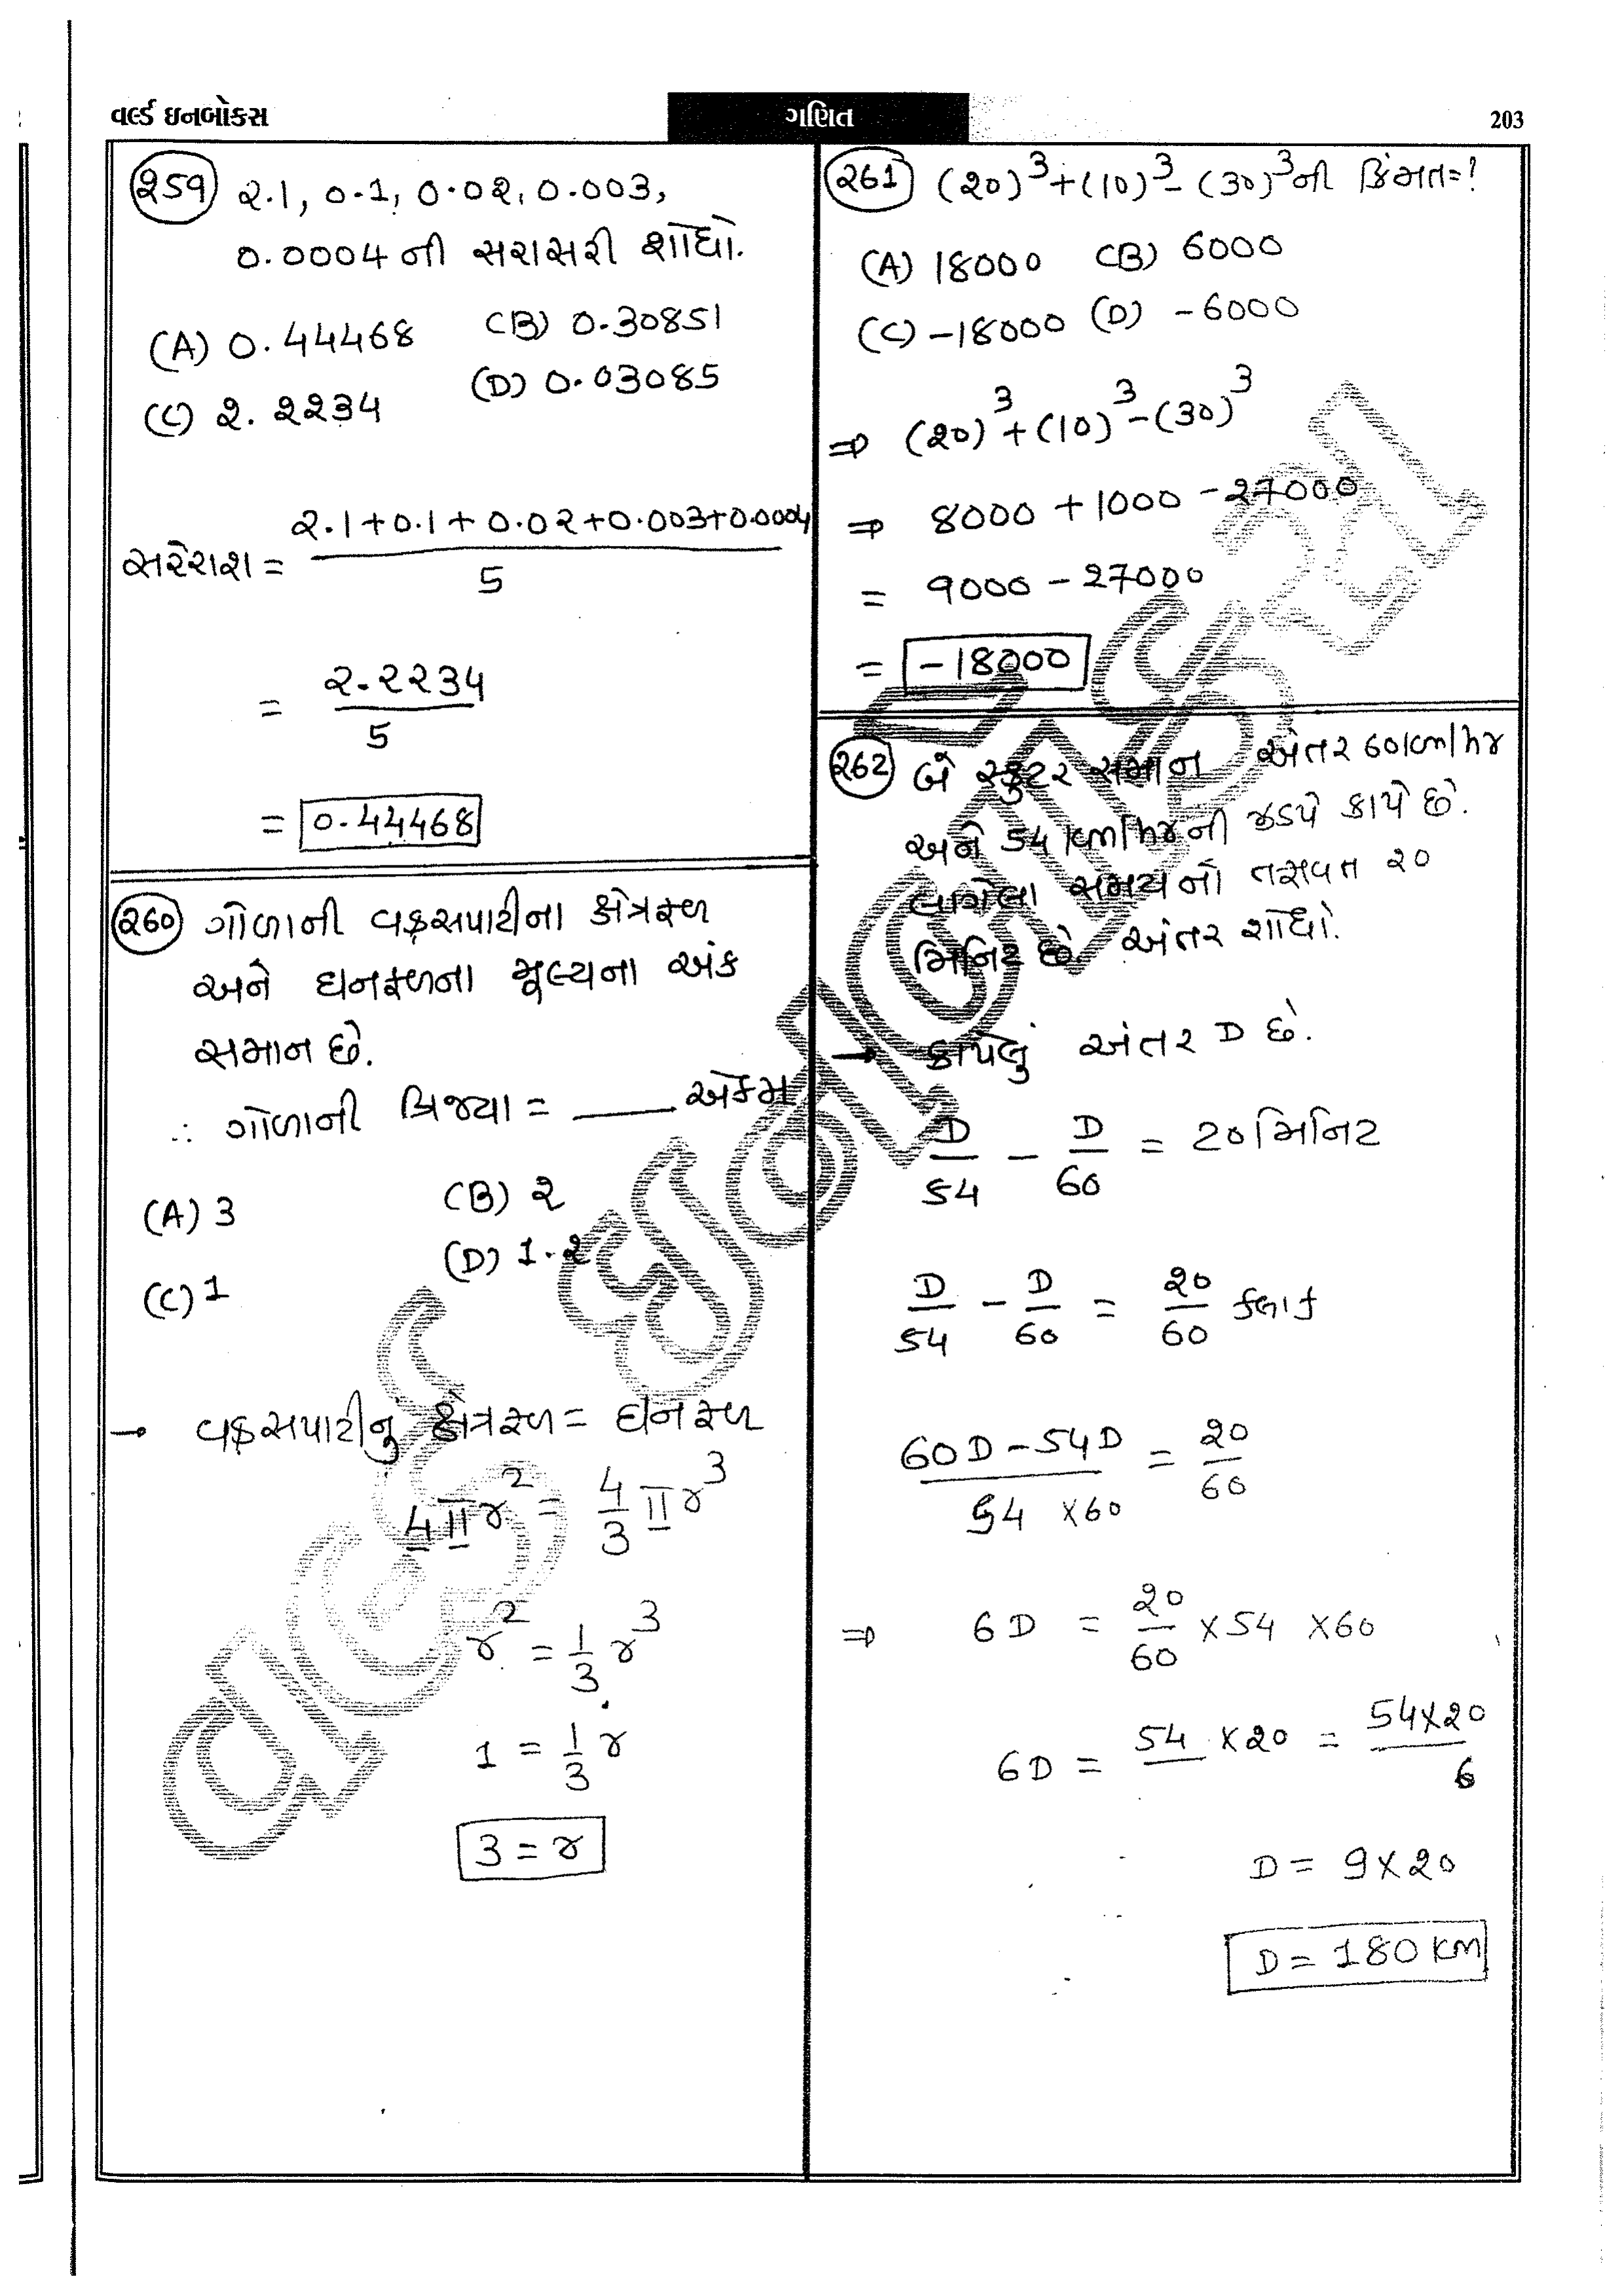 વર્લ્ડ ઇનબોક્સ
ગણિત
203
259 ૨.1, 0.1, 0.0૨, 0.003,
0.0004 ની સરાસરી શોધો.
(A) 0.44468 (B) 0.30851
(C) ૨.૨૨34 (D) 0.03085
સરેરાશ = ૨.1+0.1+0.0૨+0.003+0.0004 / 5
= ૨.૨૨34 / 5
= 0.44468
૨60 ગોળાની વક્રસપાટીના ક્ષેત્રફળ
અને ઘનફળના મૂલ્યના અંક
સમાન છે.
∴ ગોળાની ત્રિજ્યા = ____ એકમ
(A) 3 (B) ૨
(C) 1 (D) 1.૨
→ વક્રસપાટીનું ક્ષેત્રફળ = ઘનફળ
4πr² = 4/3 πr³
r² = 1/3 r³
1 = 1/3 r
3 = r
૨61 (૨0)³+(10)³-(30)³ ની કિંમત=?
(A) 18000 (B) 6000
(C) -18000 (D) -6000
⇒ (૨0)³+(10)³-(30)³
⇒ 8000 + 1000 - ૨7000
= 9000 - ૨7000
= -18000
૨62 બે સ્કુટર સમાન અંતર 60 km/hr
અને 54 km/hr ની ઝડપે કાપે છે.
લાગેલા સમયનો તફાવત ૨0
મિનિટ છે. અંતર શોધો.
→ કાપેલું અંતર D છે.
D/54 - D/60 = 20 મિનિટ
D/54 - D/60 = ૨0/60 કલાક
60D - 54D / 54 ×60 = ૨0/60
⇒ 6D = ૨0/60 ×54 ×60
6D = 54 ×૨0 = 54×૨0 / 6
D = 9×૨0
D = 180 KM